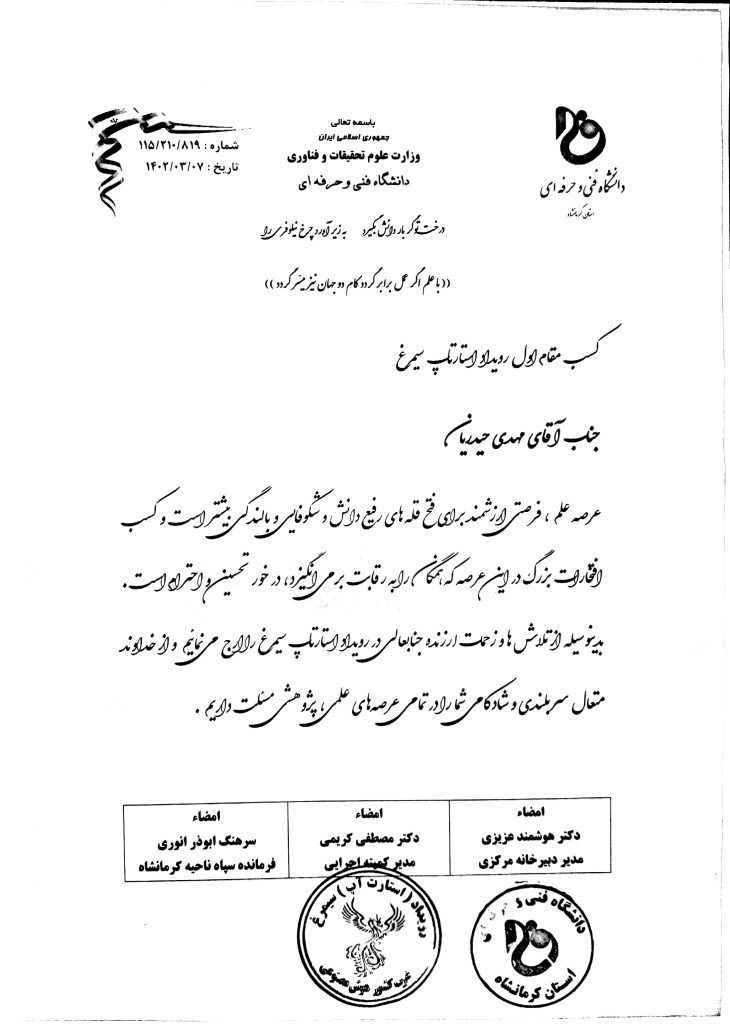 باسمه تعالی
جمهوری اسلامی ایران
وزارت علوم تحقیقات و فناوری
دانشگاه فنی و حرفه ای
شماره : ۱۱۵/۲۱۰/۸۱۹
تاریخ : ۱۴۰۲/۰۳/۰۷
دانشگاه فنی و حرفه ای
استان کرمانشاه
درخت تو گر بار دانش بگیرد به زیر آورد چرخ نیلوفری را
((با علم اگر عمل برابر گردد کام دو جهان نیز میسر گردد))
کسب مقام اول رویداد استارتاپ سیمرغ
جناب آقای مهدی حیدریان
عرصه علم ، فرصتی ارزشمند برای فتح قله های رفیع دانش و شکوفایی و بالندگی بیشتر است و کسب
افتخارات بزرگ در این عرصه که همگان را به رقابت برمی انگیزد، در خور تحسین و احترام است.
بدینوسیله از تلاش ها و زحمات ارزنده جنابعالی در رویداد استارتاپ سیمرغ را ارج می نمائیم و از خداوند
متعال سربلندی و شادکامی شما را در تمامی عرصه های علمی، پژوهشی مسئلت داریم .
امضاء
دکتر هوشمند عزیزی
مدیر دبیرخانه مرکزی
امضاء
دکتر مصطفی کریمی
مدیر کمیته اجرایی
امضاء
سرهنگ ابوذر انوری
فرمانده سپاه ناحیه کرمانشاه
دانشگاه فنی و حرفه ای
استان کرمانشاه
رویداد (استارت آپ) سیمرغ
غرب کشور هوش مصنوعی